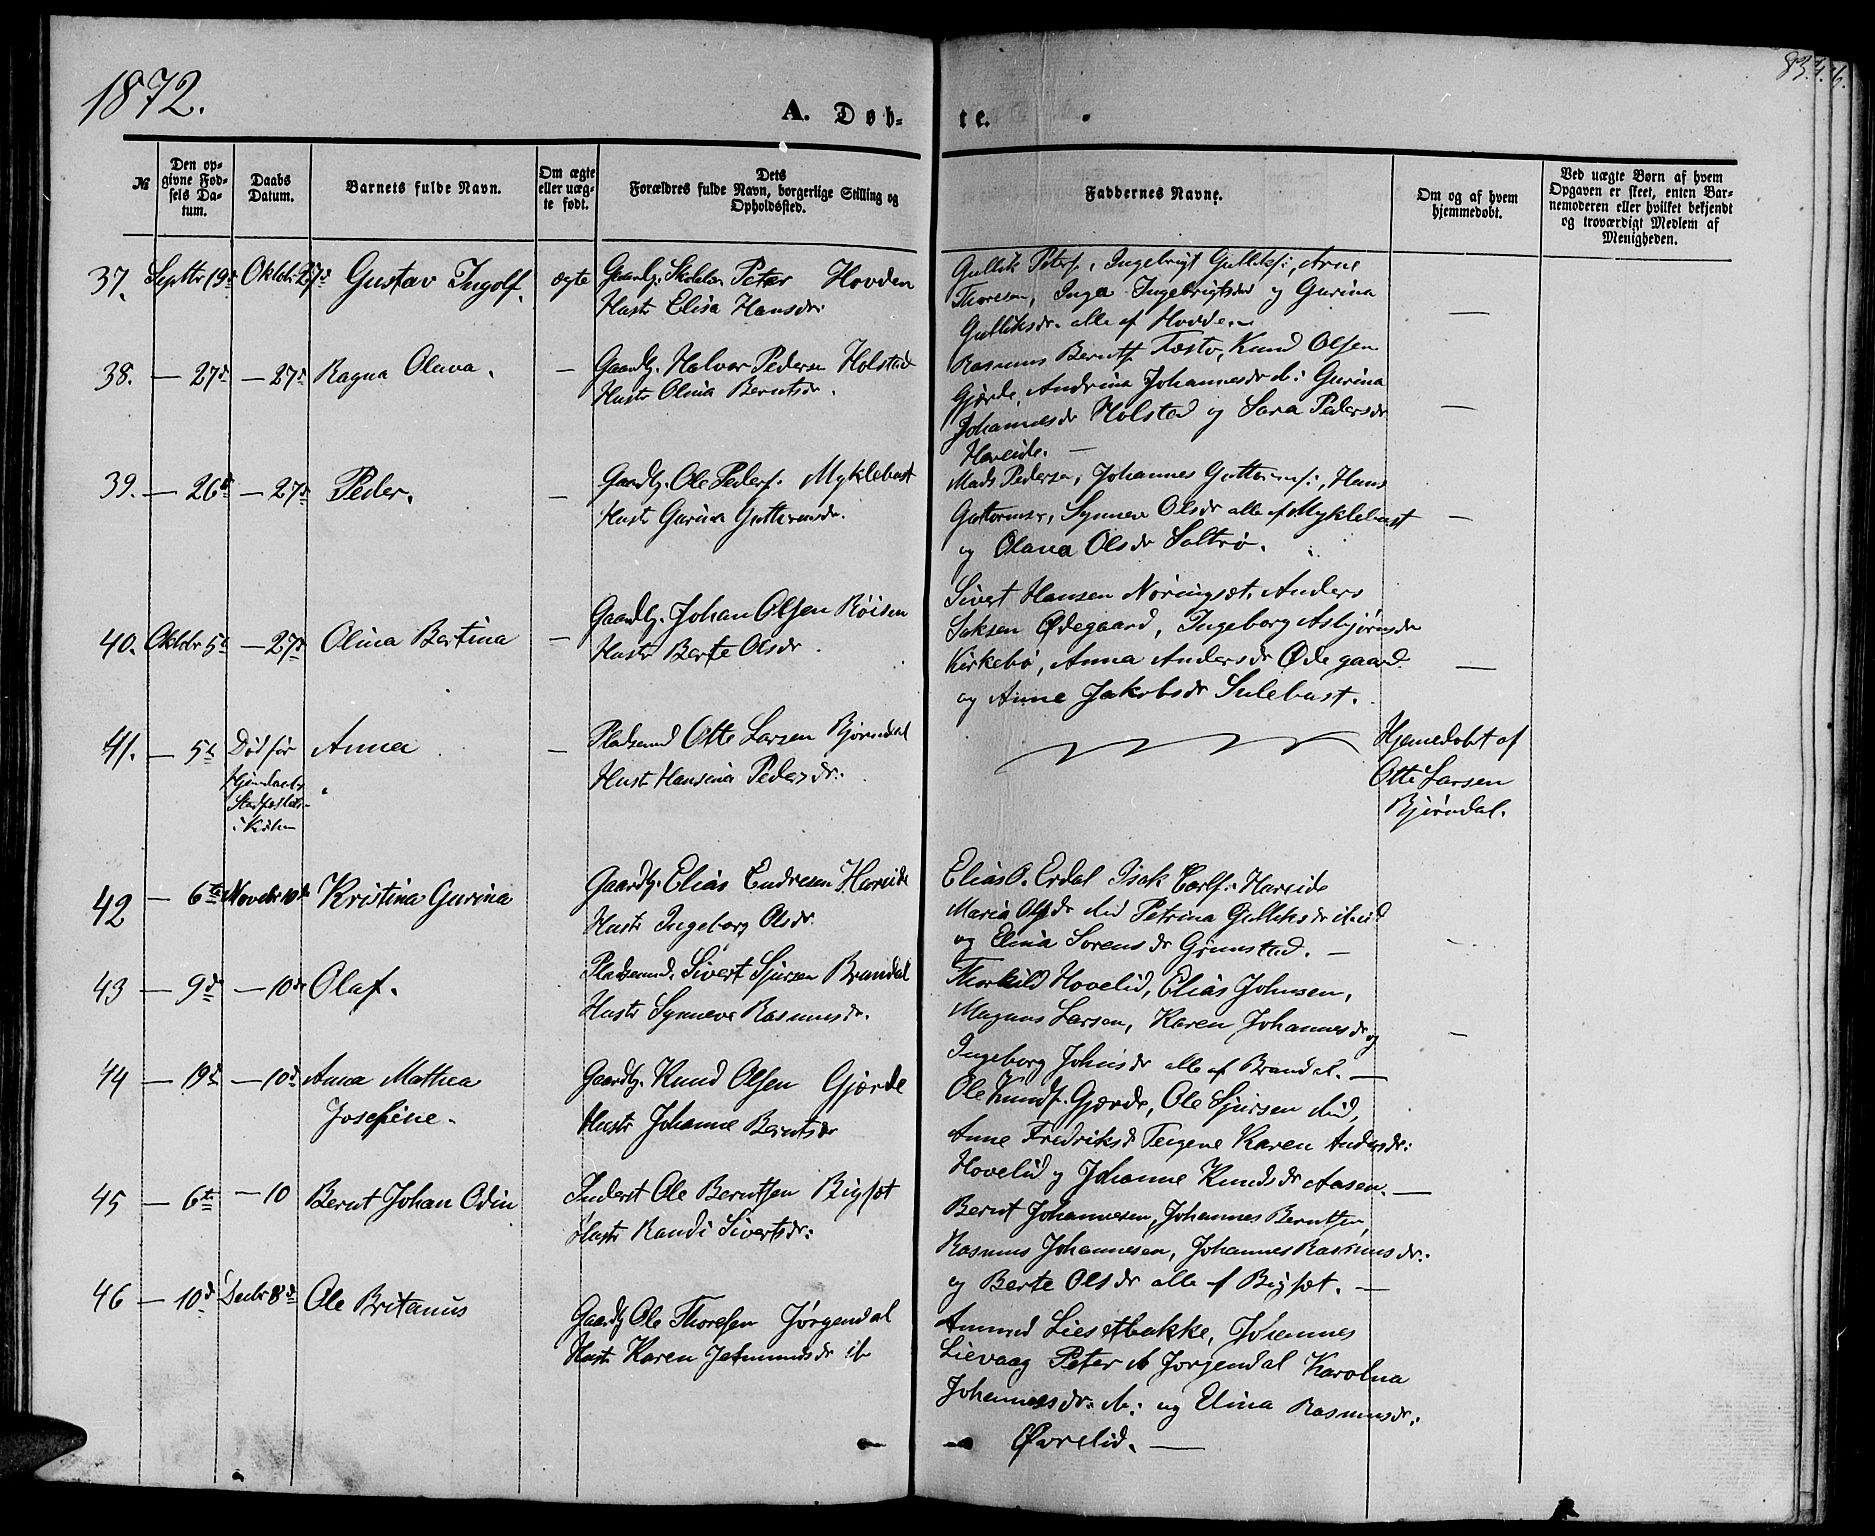 1872.
A. Døb-
te.
83.
№
Den op-
givne Fød-
sels Da-
tum.
Daabs
Datum.
Barnets fulde Navn.
Om ægte
eller uæg-
te født.
Dets
Forældres fulde Navn, borgerlige Stilling og
Opholdssted.
Faddernes Navne.
Om og af hvem
hjemmedøbt.
Ved uægte Børn af hvem
Opgaven er skeet, enten Bar-
nemoderen eller hvilket bekjendt
og troværdigt Medlem af
Menigheden.
37. Septbr 19d Oktobr 27d Gustav Ingolf. ægte Gaardbr. Peter Hovden
Hustr Elisa Hansdr.
Gullik Peters., Ingebrigt Gulliks:, Arne
Thoresen, Inga Ingebrigtsd og Gurina
Gulliksdr. alle af Hovden —
38. — 27d — 27d Ragna Oluva. — Gaardbr. Halvor Pedersen Holstad
Hustr Olina Berntsdr.
Rasmus Berntss. Tæsto, Knud Olsen
Gjærde, Andrina Johannesdr. ib: Gurina
Johannesdr Holstad og Sara Pedersdr
Hareide. — —
39. — 26d — 27d Peder. — Gaardbr. Ole Peders. Myklebust
Hustr Gurina Guttormsdr.
Mads Pedersen, Johannes Guttorms:, Hans
Guttormsen, Synneve Olsdr alle af Myklebust —
og Olava Olsdr Saltrø.
40. Oktobr 5t — 27d Olina Bertina — Gaardbr. Johan Olsen Røisen
Hustr Berte Olsdr.
Sivert Hansen Nøringset, Anders
Saksen Ødegaard, Ingeborg Asbjørnsdr
Kirkebø, Anna Andersdr Ødegaard —
og Anne Jakobsdr Sulebust.
41. — 5t Død før
Stadfæstels.
i Kirken
Anna — Pladsmd Otte Larsen Bjørndal
Hustr Hansina Pedersdr.
Hjemedøbt af
Otte Larsen
Bjørndal.
42 — 6te Novebr 10de Kristina Gurina Gaardbr. Elias Endresen Hareide
Hustr Ingeborg Olsdr.
Elias O. Erdal Isak Carls. Hareide
Maria Olsdr ibid Petrina Gulliksdr ibid
og Elina Sorensdr Grimstad. —
43 — 9d — 10de Olaf. Pladsmd. Sivert Sjursen Brandal
Hustr Synneve Rasmusdr.
Thorkild Hovelid, Elias Johnsen,
Magnus Larsen, Karen Johannesdr og
Ingeborg Johnsdr alle af Brandal. —
44 — 19d — 10d Anna Mathea
Josefine.
Gaardbr. Knud Olsen Gjærde
Hustr Johanne Berntsdr
Ole Knuds. Gjærde, Ole Sjursen ibid,
Anne Fredriksd Tengene Karen Andersdr:
Hovelid og Johanne Knudsdr Aasen. —
45 — 6te — 10 Bernt Johan Odin Inderst Ole Berntsen Bigset
Hustr Randi Sivertsdr:
Bernt Johannesen, Johannes Berntsen,
Rasmus Johannesen, Johannes Rasmusdr:
og Berte Olsdr alle af Bigset. —
46 — 10d Decbr 8d Ole Britanus
Gaardbr Ole Thoresen Jørgendal
Hustr Karen Jetmundsdr ib
Amund Liesetbakke, Johannes
Lievaag Peter ib Jørgendal Karolina
Johannesdr. ib: og Elina Rasmusdr:
Øvrelid. —